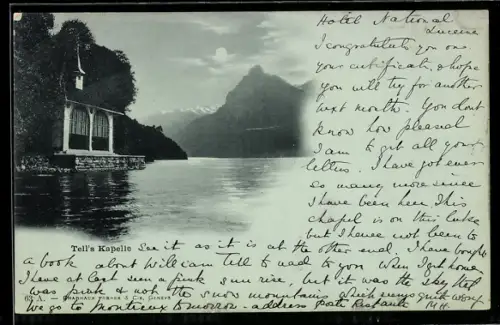 Hotel National
Lucerne
I congratulate you one
your certificate, & hope
you will try for another
next month. You dont
know how pleased
I am to get all your
letters. I have got ever
so many more since
I have been here. This
chapel is on this lake
but I have not been to
Tell's Kapelle See it as it is at the other end. I have bought
a book about William Tell to read to you when I get home
I have at last seen a pink sun rise, but it was the sky that
was pink & not the snow mountains which seems quite wrong
63 A. — CHARNAUX FRÈRES & Cie, GENÈVE
We go to Montreux tomorrow - address Poste Restante M.H.